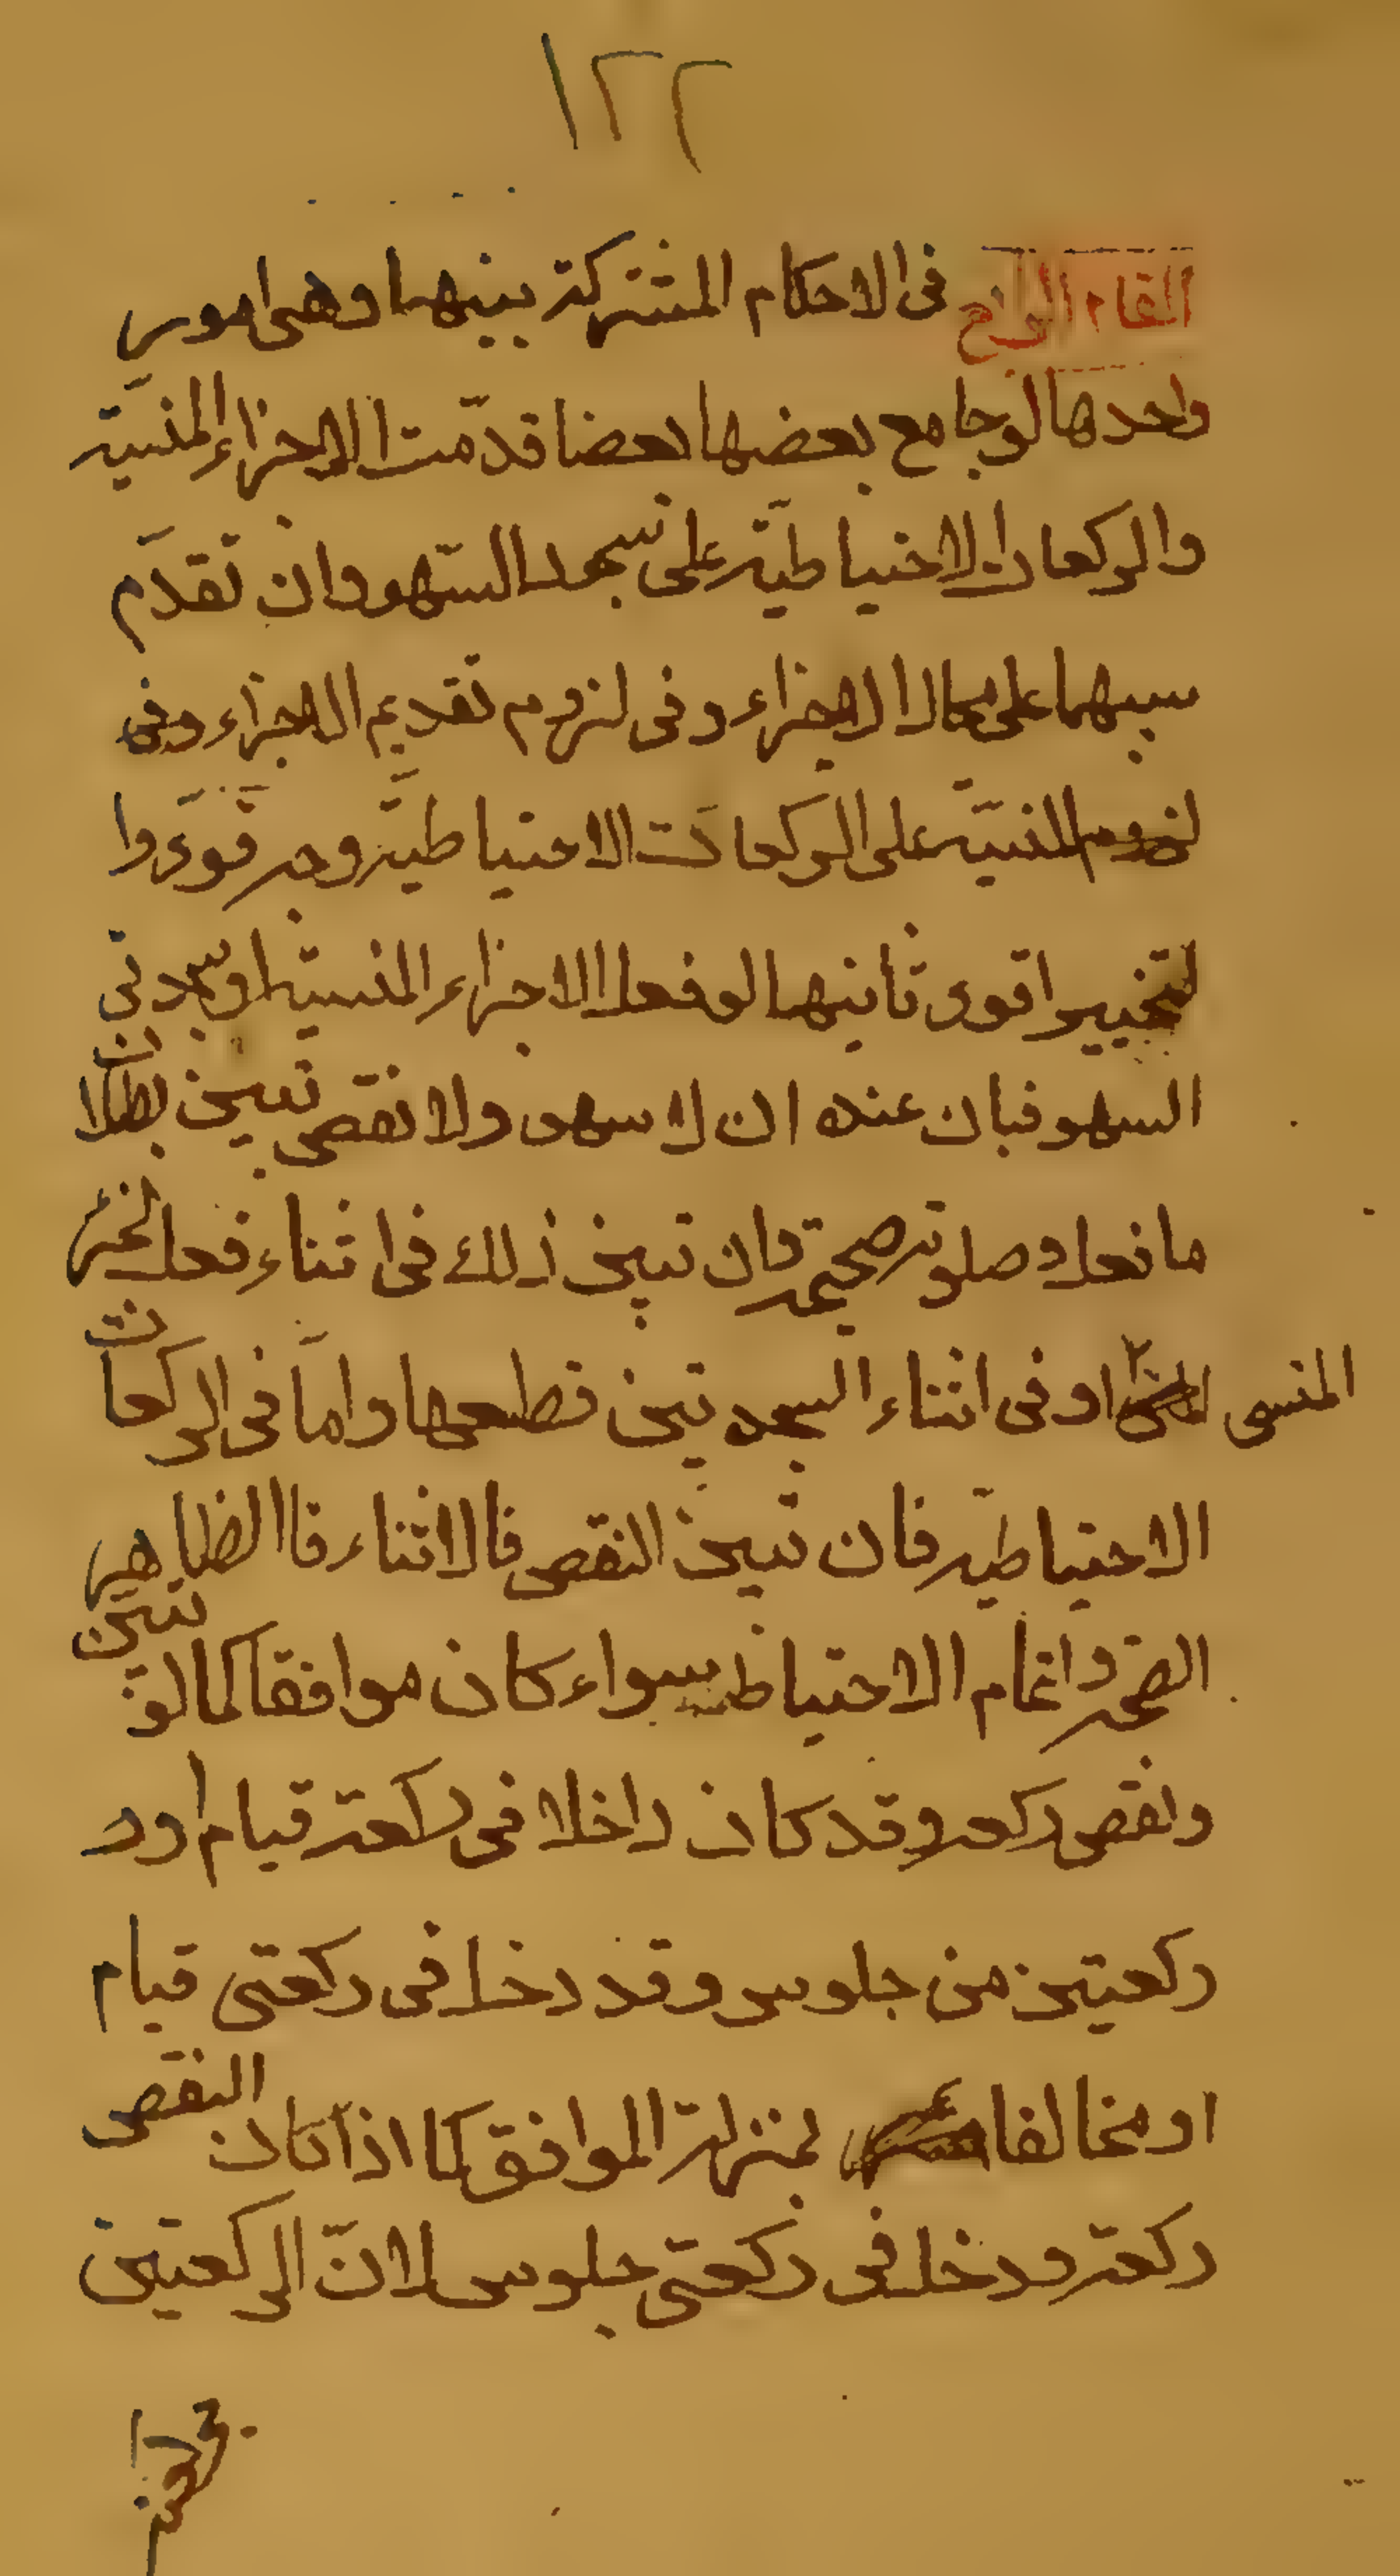 ١٢٢
المقام الرابع فى الاحكام المشتركة بينهما وهى امور
واحدها لو جامع بعضها بعضا قدّمت الاجزاء المنسيّة
والركعات الاحتياطيّة على سجد السّهو وان تقدّم
سببهما على محال الاجزاء وفى لزوم تقديم الاجزاء وفى
لزوم المنسيّة على الركعات الاحتياطيّة وجه قوىّ وا
لتخيير اقوى ثانيها لو فعل الاجزاء المنسيّة او سجدتى
السهو فبان عنده ان لا سهو ولا نقص تبين بطلان
ما فعل وصلوته صحيحة فان تبين ذلك فى اثناء فعل الجزء
المنسى او فى اثناء السجده تبين قطعها وامّا فى الركعات
الاحتياطيّه فان تبين النقص فالاثناء فاالظاهر
الصحّه واتمام الاحتياط سواء كان موافقا كما لو تبيّن
ونقص ركعه وقد كان داخلا فى ركعة قيام اور
ركعتين من جلوس وقد دخل فى ركعتى قيام
او مخالفا بمنزلة الموافق كما اذا كان النقص
ركعة ودخل فى ركعتى جلوس لانّ الركعتين